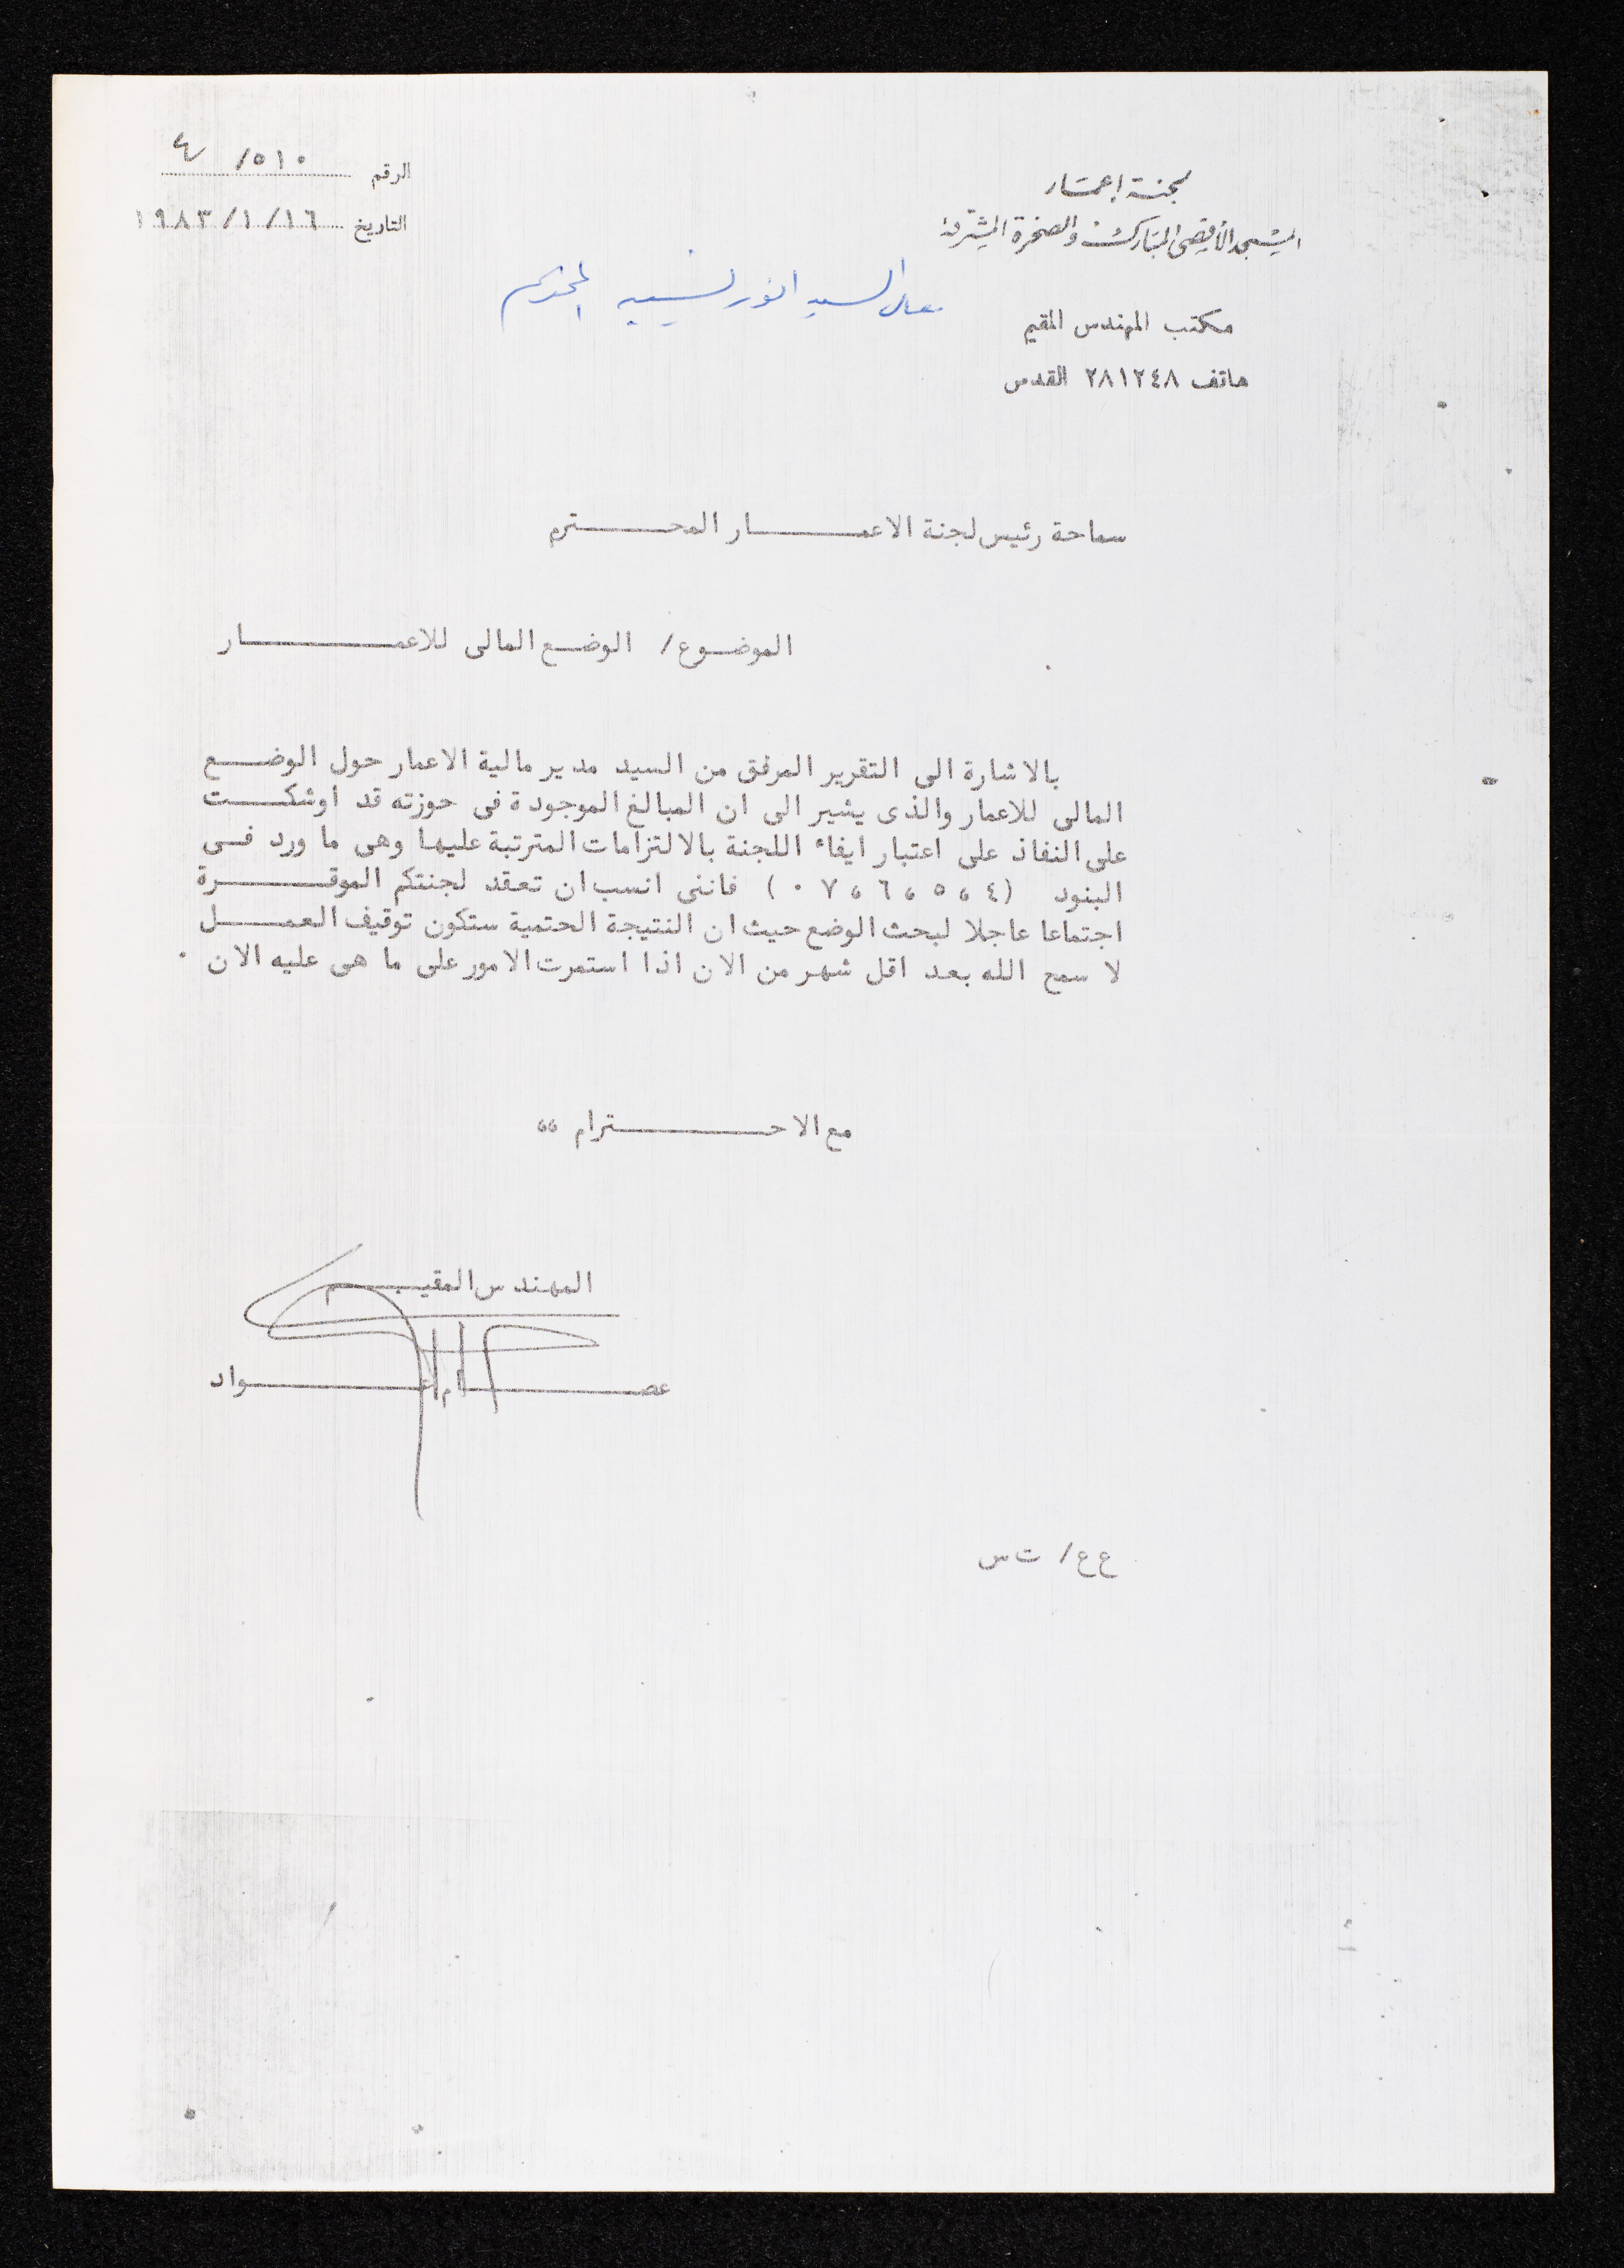 لجنة إعمار
المسجد الأقصى المبارك والصخرة المشرفة
مكتب المهندس المقيم
هاتف ٢٨١٢٤٨ القدس
الرقم ٥١٠/ ٤
التاريخ ١٩٨٣/١/١٦
معالي السيد انور نسيبه المحترم
سماحة رئيس لجنة الاعمار المحترم
الموضوع/ الوضع المالى للاعمار
بالاشارة الى التقرير المرفق من السيد مدير مالية الاعمار حول الوضع
المالى للاعمار والذى يشير الى ان المبالغ الموجودة فى حوزته قد اوشكت
على النفاذ على اعتبار ايفاء اللجنة بالالتزامات المترتبة عليها وهى ما ورد فى
البنود (٤،٥،٦،٧٠) فاننى انسب ان تعقد لجنتكم الموقرة
اجتماعا عاجلا لبحث الوضع حيث ان النتيجة الحتمية ستكون توقيف العمل
لا سمح الله بعد اقل شهر من الان اذا استمرت الامور على ما هى عليه الان ٠
مع الاحترام ،،
المهندس المقيم
عصام عواد
ع ع/ ت س